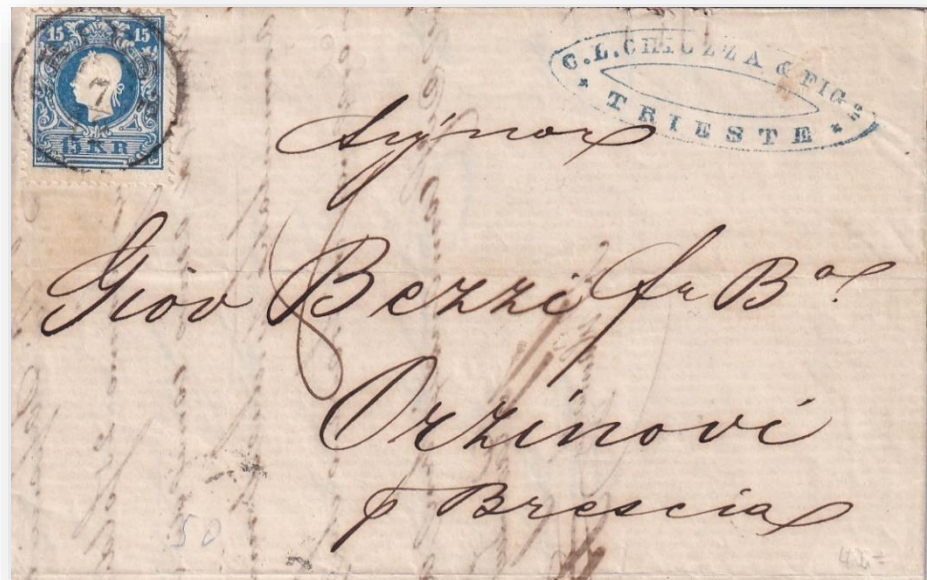 15 15
7
15 KR
C. L. CHIOZZA & FIG.º
TRIESTE
Signor
Giov Bezzi fu Bª
Orzinovi
p Brescia
50